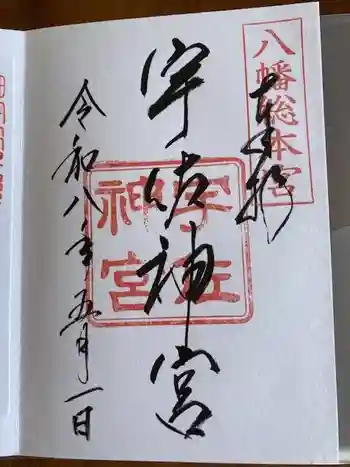 八幡総本宮
奉拝
宇佐神宮
宇佐
神宮
令和八年五月一日